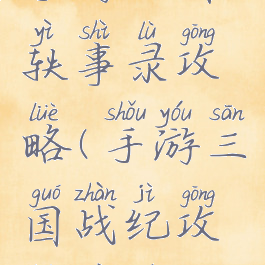 yì shì lù gōng
轶事录攻
lüè shǒu yóu sān
略(手游三
guó zhàn jì gōng
国战纪攻